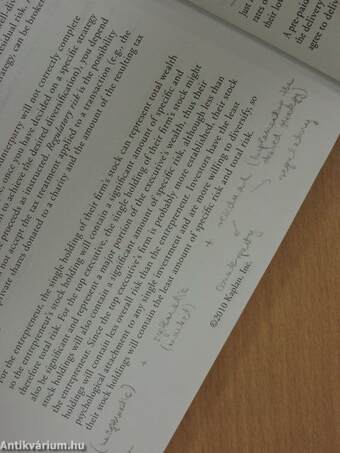 sidual risk.
trategy, can be broken
counterparty will not correctly complete
e, once you have decided on a specific strategy
n to achieve the desired diversification), you depend
proceeds as instructed. Regulatory risk is the possibility
not accept the tax treatment applied to a transaction (e.g., the
private shares donated to a charity and the amount of the resulting tax
For the entrepreneur, the single holding of their firm's stock can represent total wealth
so the entrepreneur's stock holding will contain a significant amount of specific and
therefore total risk. For the top executive, the single holding of their firm's stock might
also be significant and represent a major portion of the executive's wealth, thus their
stock holdings will also contain a significant amount of specific risk, although less than
the entrepreneur. Since the top executive's firm is probably more established, their stock
holdings will contain less overall risk than the entrepreneur. Investors have the least
psychological attachment to any single investment and are more willing to diversify, so
their stock holdings will contain the least amount of specific risk and total risk.
+ systematic
(market)
+ residual
counterparty
regulatory
©2010 Kaplan, Inc.
rates
of
their
A pre-paid
the delivery
agree to deliver
Antikvárium.hu